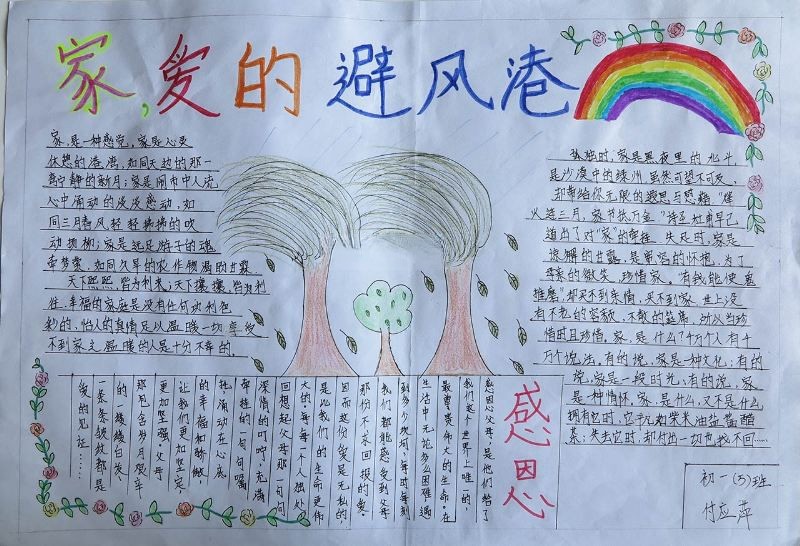 家,爱的避风港
家,是一种感觉,家是心灵
休憩的港湾,如同天边的那一
离宁静的新月;家是闹市中人流
人中涌动的淡淡感动,如
同三月春风轻轻拂拂的吹
动杨柳;家是远足游子的魂
牵梦萦,如同久旱的农作物渴的甘露
天下熙熙,皆为利来;天下攘攘,皆为利
往,幸福的家庭是没有任何功利色
彩的,怡人的真情足以温暖一切,享受
不到家之温暖的人是十分不幸的。
孤独时,家是黑夜里的北斗
是沙漠中的绿洲,虽然可望不可及,
却带给你无限的遐思与思绪“烽
火连三月,家书抵万金”诗圣杜甫早已
道出了对“家”的牵挂,失足时,家是
的甘露,是宽恕的怀抱,为了
的微笑,珍惜家。“有钱能使鬼
推磨”,却买不到亲情,买不到家,世上没
有不老的容颜,不散的筵席,所以当珍
惜时且珍惜,家,是什么?十万个人有十
万个说法。有的说,家是一种文化;有的
说,家是一段时光;有的说,家
是一种情怀,家是什么,又不是什么
拥有它时,它平凡如柴米油盐酱醋
茶;失去它时,却付出一切也找不回……
感恩
感恩父母,是他们给了
我们这个世界上唯一的,
最尊贵伟大的生命。在
生活中无论多么困难遇
到多少坎坷,每时每刻
我们都能感受到父母
那份不求回报的爱。
因而这份爱是无私的,
是比我们的生命更伟
大的,每当一个人独处
回想起父母那一句句
深情的叮咛,充满
牵挂的一句句嘱
托涌动在心底
的幸福和骄傲,
让我们更加坚定,
更加坚强。父母
那包含岁月艰辛
的一缕缕白发,
一条条皱纹都是
爱的见证……
初一(3)班
付应萍